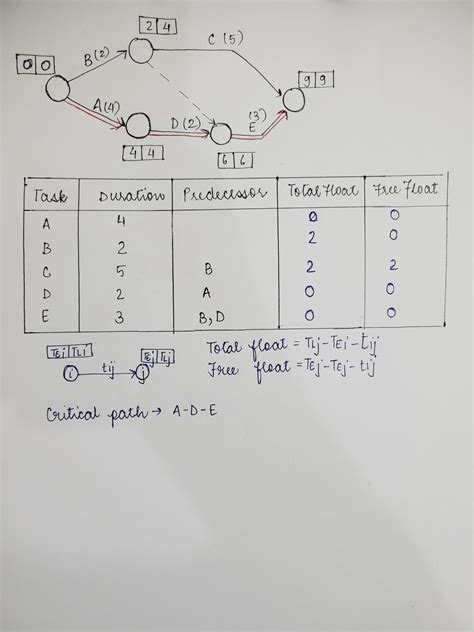 2 4
C (5)
0 0
B(2)
9 9
A(4)
D(2)
(3)
E
4 4
6 6
Task Duration Predecessor Total Float Free Float
A 4 0 0
B 2 2 0
C 5 B 2 2
D 2 A 0 0
E 3 B, D 0 0
TEi TLi TEj TLj
i tij j
Total float = TLj - TEi - tij
Free float = TEj - TEj - tij
Critical path → A-D-E